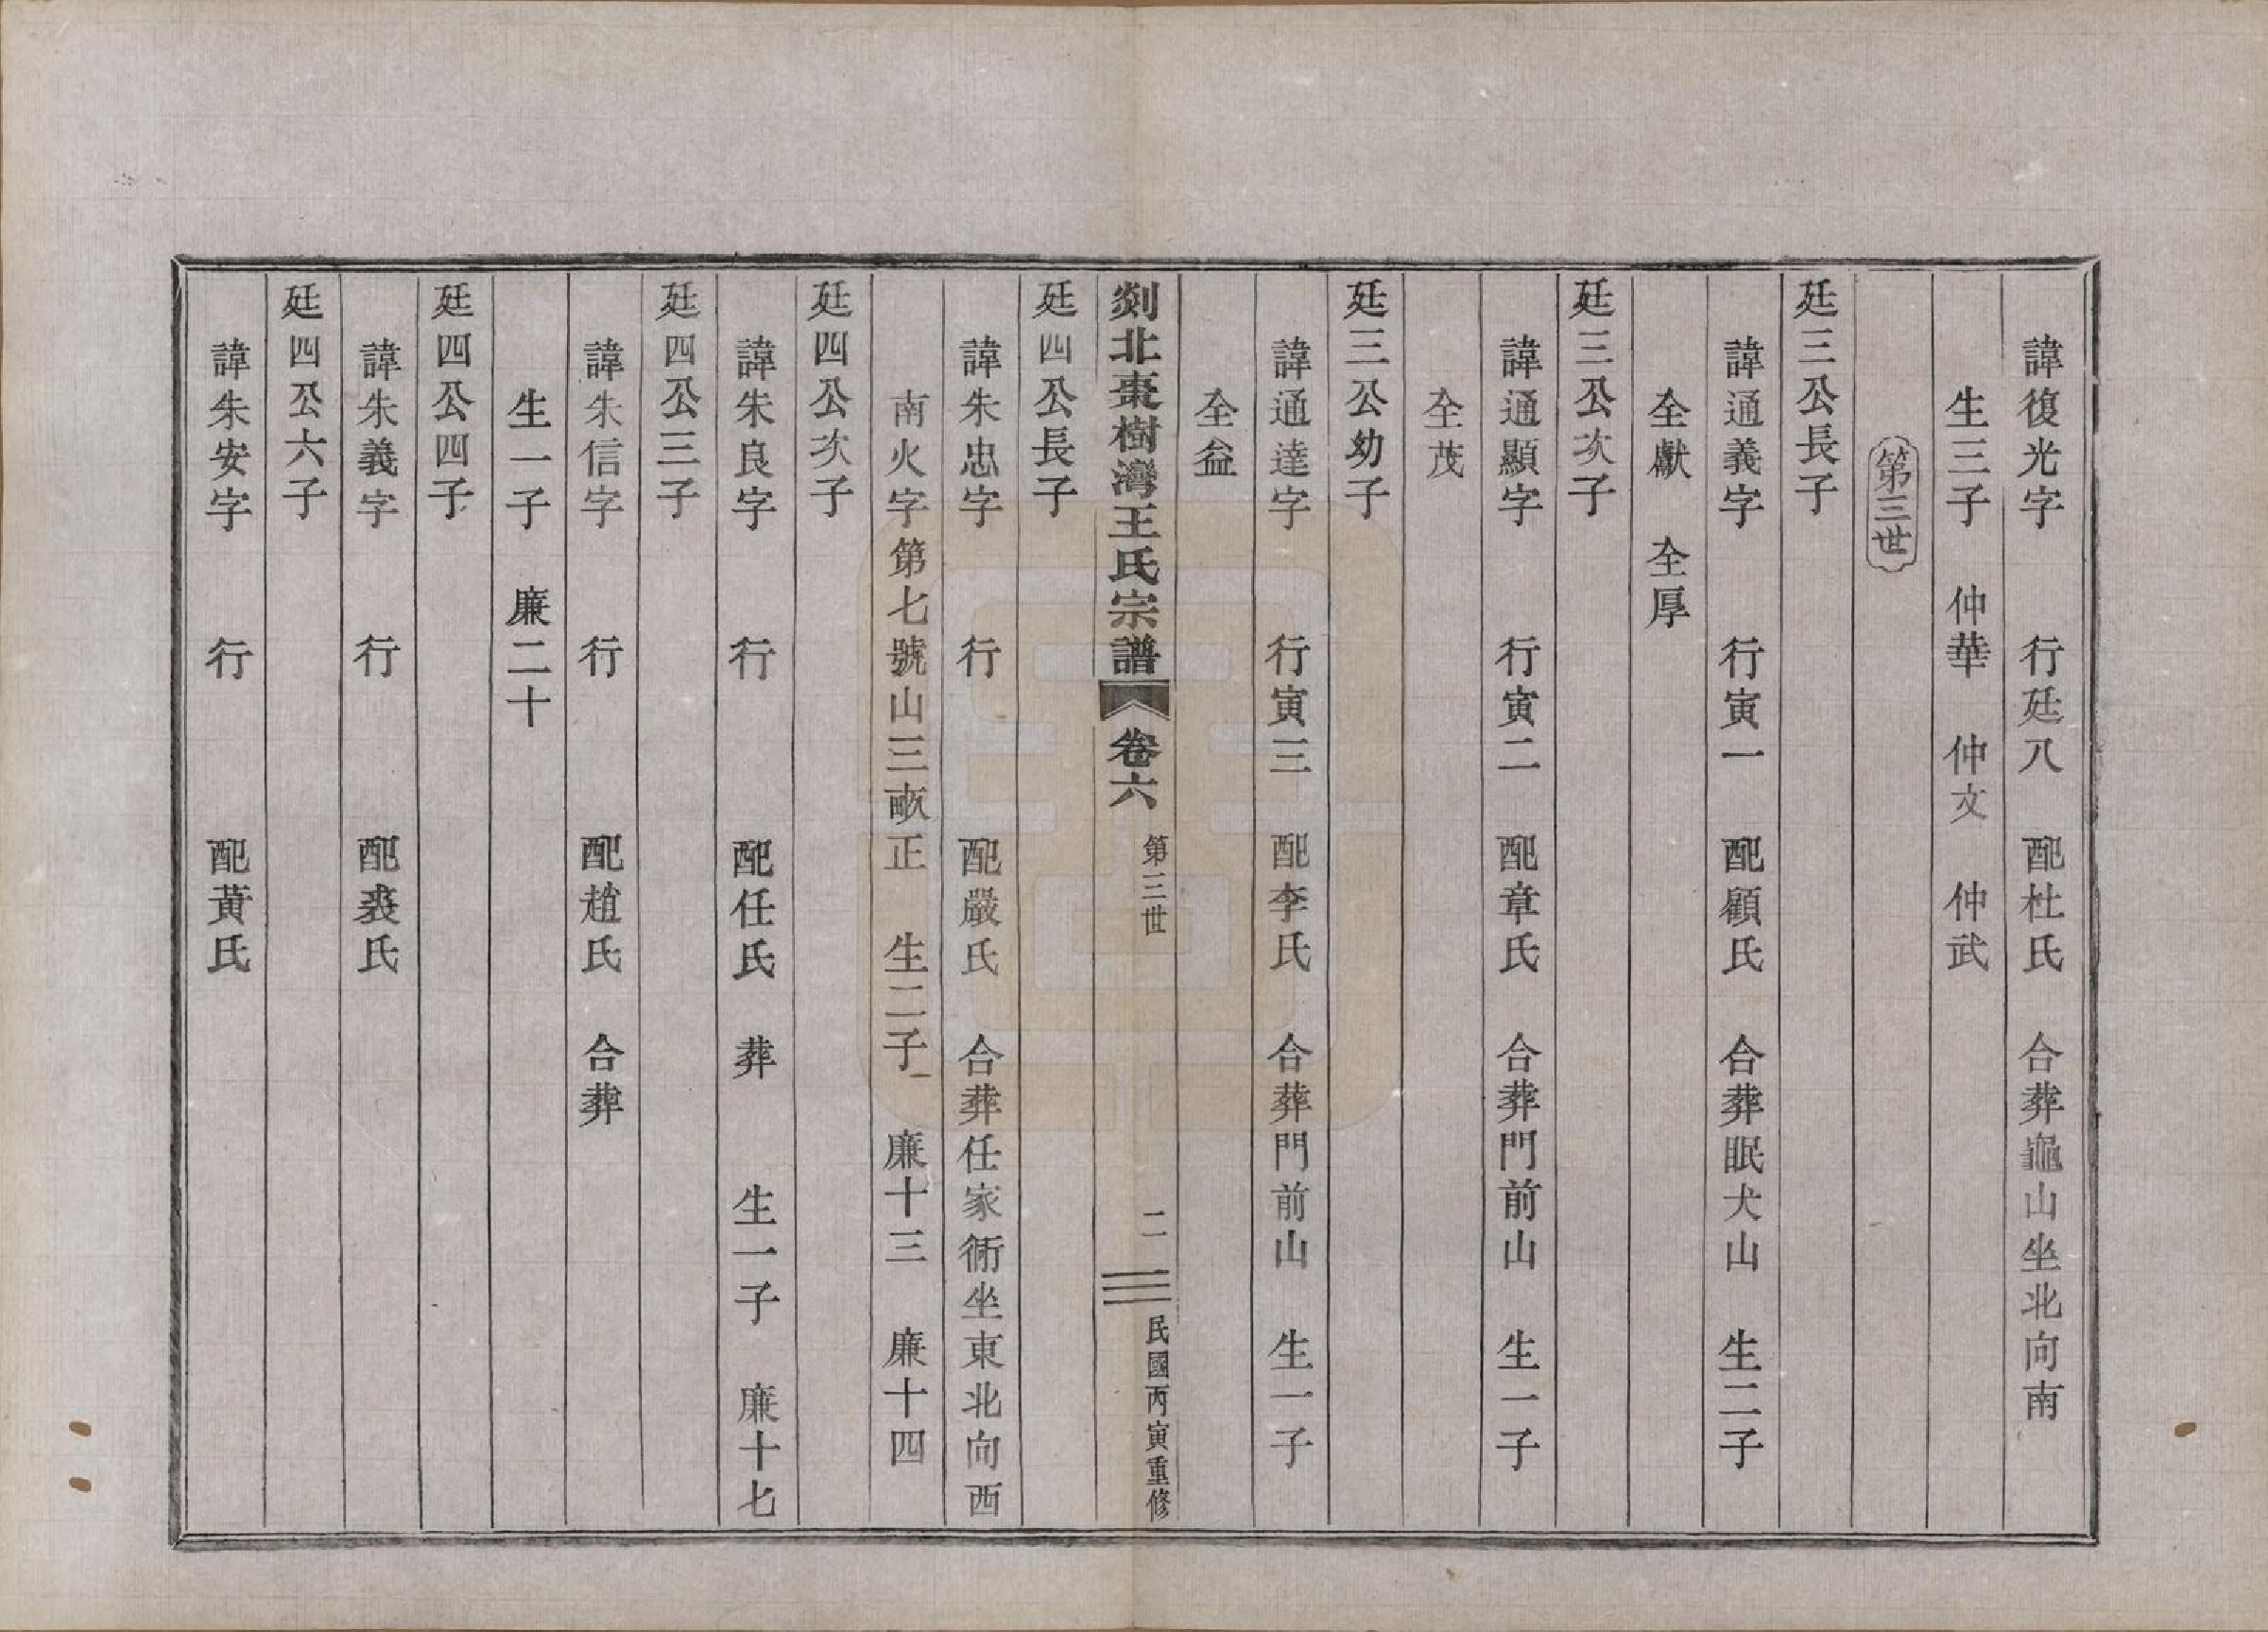 諱復光字　行廷八　配杜氏　合葬龜山坐北向南
生三子　仲華　仲文　仲武
第三世
廷三公長子
諱通義字　行寅一　配顧氏　合葬眠犬山　生二子
全獻　全厚
廷三公次子
諱通顯字　行寅二　配章氏　合葬門前山　生一子
全茂
廷三公幼子
諱通達字　行寅三　配李氏　合葬門前山　生一子
全益
剡北棗樹灣王氏宗譜　卷六　第三世　二　民國丙寅重修
廷四公長子
諱朱忠字　行　配嚴氏　合葬任家衕坐東北向西
南火字第七號山三畝正　生二子　廉十三　廉十四
廷四公次子
諱朱良字　行　配任氏　葬　生一子　廉十七
廷四公三子
諱朱信字　行　配趙氏　合葬
生一子　廉二十
廷四公四子
諱朱義字　行　配裘氏
廷四公六子
諱朱安字　行　配黃氏